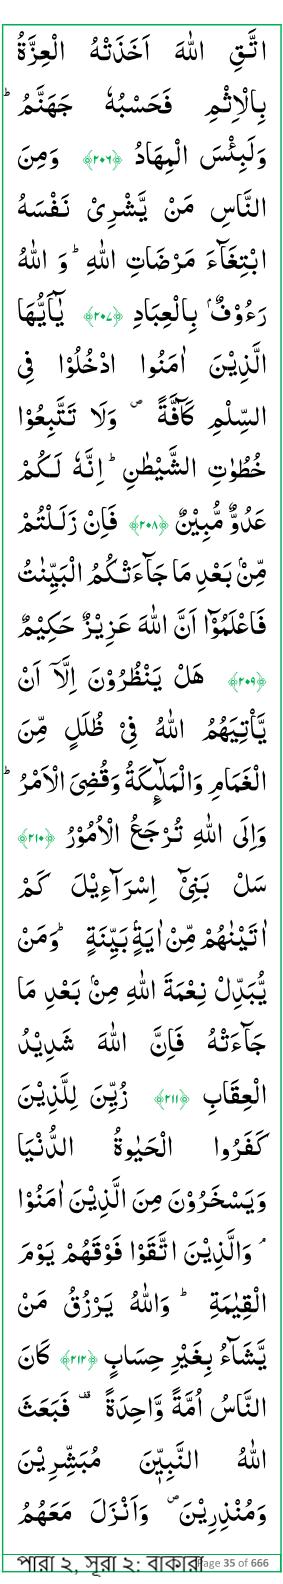 اتَّقِ اللّٰهَ اَخَذَتْهُ الْعِزَّةُ
بِالْاِثْمِ فَحَسْبُهٗ جَهَنَّمُ ؕ
وَلَبِئْسَ الْمِهَادُ ﴿۲۰۶﴾ وَمِنَ
النَّاسِ مَنْ یَّشْرِیْ نَفْسَهُ
ابْتِغَآءَ مَرْضَاتِ اللّٰهِ ؕ وَ اللّٰهُ
رَءُوْفٌۢ بِالْعِبَادِ ﴿۲۰۷﴾ یٰۤاَیُّهَا
الَّذِیْنَ اٰمَنُوا ادْخُلُوْا فِی
السِّلْمِ كَآفَّةً ۪ وَلَا تَتَّبِعُوْا
خُطُوٰتِ الشَّیْطٰنِ ؕ اِنَّهٗ لَكُمْ
عَدُوٌّ مُّبِیْنٌ ﴿۲۰۸﴾ فَاِنْ زَلَلْتُمْ
مِّنْۢ بَعْدِ مَا جَآءَتْكُمُ الْبَیِّنٰتُ
فَاعْلَمُوْۤا اَنَّ اللّٰهَ عَزِیْزٌ حَكِیْمٌ
﴿۲۰۹﴾ هَلْ یَنْظُرُوْنَ اِلَّاۤ اَنْ
یَّاْتِیَهُمُ اللّٰهُ فِیْ ظُلَلٍ مِّنَ
الْغَمَامِ وَالْمَلٰٓئِكَةُ وَقُضِیَ الْاَمْرُ ؕ
وَاِلَی اللّٰهِ تُرْجَعُ الْاُمُوْرُ ﴿۲۱۰﴾
سَلْ بَنِیْۤ اِسْرَآءِیْلَ كَمْ
اٰتَیْنٰهُمْ مِّنْ اٰیَةٍۭ بَیِّنَةٍ ؕ وَمَنْ
یُّبَدِّلْ نِعْمَةَ اللّٰهِ مِنْۢ بَعْدِ مَا
جَآءَتْهُ فَاِنَّ اللّٰهَ شَدِیْدُ
الْعِقَابِ ﴿۲۱۱﴾ زُیِّنَ لِلَّذِیْنَ
كَفَرُوا الْحَیٰوةُ الدُّنْیَا
وَیَسْخَرُوْنَ مِنَ الَّذِیْنَ اٰمَنُوْا
ۘ وَالَّذِیْنَ اتَّقَوْا فَوْقَهُمْ یَوْمَ
الْقِیٰمَةِ ؕ وَاللّٰهُ یَرْزُقُ مَنْ
یَّشَآءُ بِغَیْرِ حِسَابٍ ﴿۲۱۲﴾ كَانَ
النَّاسُ اُمَّةً وَّاحِدَةً ۟ فَبَعَثَ
اللّٰهُ النَّبِیّٖنَ مُبَشِّرِیْنَ
وَمُنْذِرِیْنَ ۪ وَاَنْزَلَ مَعَهُمُ
পারা ২, সূরা ২: বাকারা Page 35 of 666